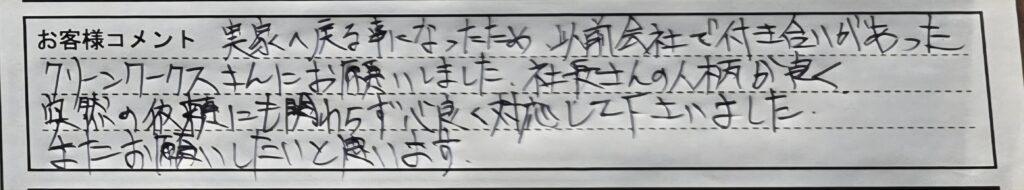 お客様コメント 実家へ戻る事になったため 以前会社で付き合いがあった
クリーンワークスさんにお願いしました。社長さんの人柄が良く
突然の依頼にも関わらず心良く対応して下さいました.
またお願いしたいと思います.